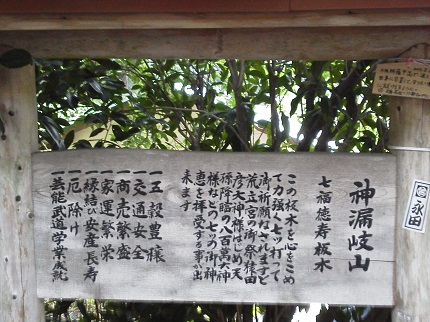 神漏岐山
七福徳寿板木
この板木を心をこめ
て力強く七ッ打って
御祈願なされますと
荒立宮の御祭神猿田
彦大神様はじめ天
孫降臨の八百萬神
様などの七つの御神
恵を拝受する事が出
来ます
一五穀豊穣
一交通安全
一商売繁盛
一家運繁栄
一縁結び安産長寿
一厄除け
一芸能武道学業成就
永田